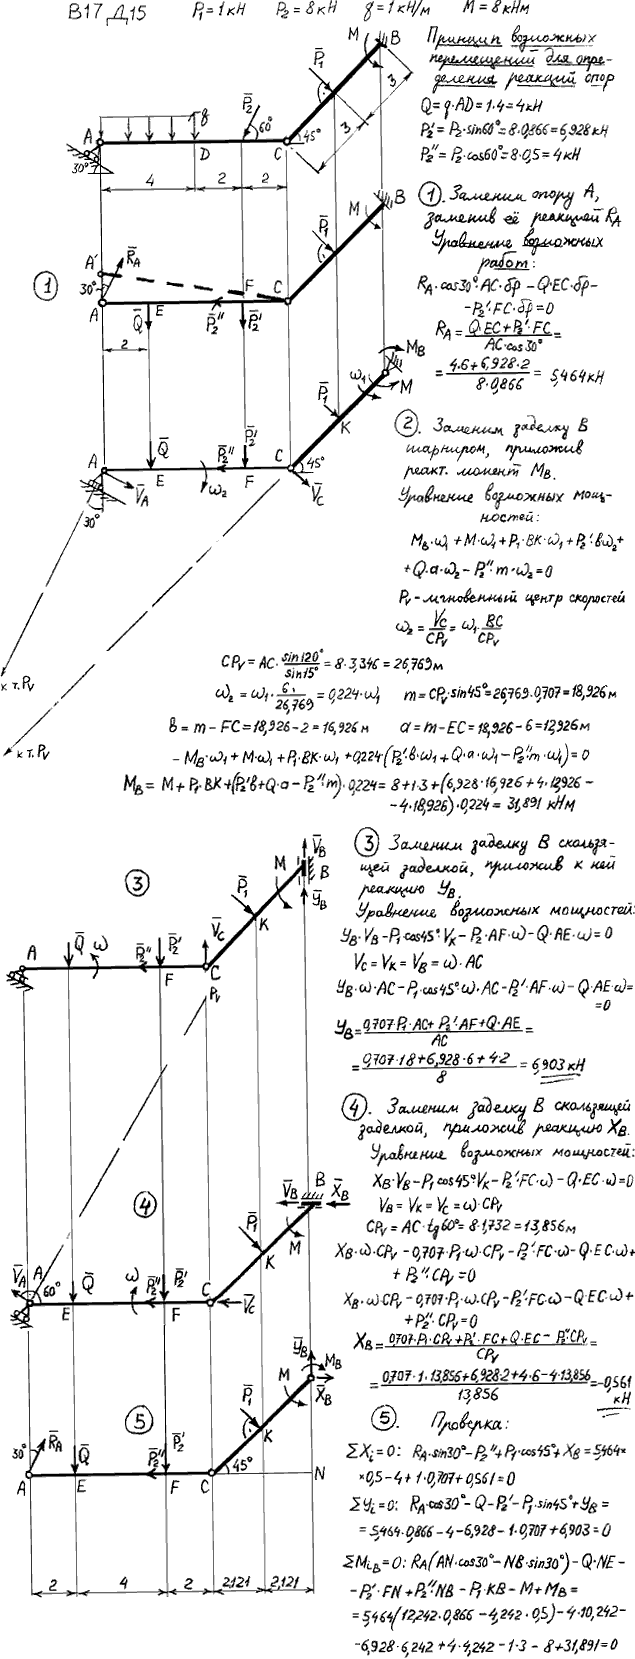 В17 Д15 P̄₁ = 1 кН P₂ = 8 кН q = 1 кН/м M = 8 кНм
Принцип возможных
перемещений для опре-
деления реакций опор
Q = q·AD = 1·4 = 4 кН
P₂' = P₂·sin60° = 8·0,866 = 6,928 кН
P₂'' = P₂·cos60° = 8·0,5 = 4 кН
A q P̄₂ 60° D C 45° P̄₁ M B 3 3
30°
4 2 2
① . Заменим опору A,
заменив её реакцией R̄A
Уравнение возможных
работ:
RA·cos30°·AC·δφ − Q·EC·δφ −
− P₂'·FC·δφ = 0
RA = (Q·EC + P₂'·FC)/(AC·cos30°) =
= (4·6 + 6,928·2)/(8·0,866) = 5,464 кН
① A' R̄A 30° A E Q̄ P̄₂'' F P̄₂' C P̄₁ M B
2
② . Заменим заделку B
шарниром, приложив
реакт. момент MB.
Уравнение возможных мощ-
ностей:
MB·ω₁ + M·ω₁ + P₁·BK·ω₁ + P₂'·bω₂ +
+ Q·a·ω₂ − P₂''·m·ω₂ = 0
Pv - мгновенный центр скоростей
ω₂ = VC/CPv = ω₁·BC/CPv
A Q̄ E P̄₂'' P̄₂' F C 45° V̄A ω₂ V̄C P̄₁ K ω₁ M MB
30°
к т. Pv
к т. Pv
CPv = AC·sin120°/sin15° = 8·3,346 = 26,769 м
ω₂ = ω₁·6/26,769 = 0,224·ω₁ m = CPv·sin45° = 26,769·0,707 = 18,926 м
b = m − FC = 18,926 − 2 = 16,926 м a = m − EC = 18,926 − 6 = 12,926 м
− MB·ω₁ + M·ω₁ + P₁·BK·ω₁ + 0,224·(P₂'·b·ω₁ + Q·a·ω₁ − P₂''·m·ω₁) = 0
MB = M + P₁·BK + (P₂'b + Q·a − P₂''·m)·0,224 = 8 + 1·3 + (6,928·16,926 + 4·12,926 −
− 4·18,926)·0,224 = 31,891 кНм
③ Заменим заделку B скользя-
щей заделкой, приложив к ней
реакцию YB.
Уравнение возможных мощностей:
YB·VB − P₁·cos45°·VK − P₂·AF·ω − Q·AE·ω = 0
VC = VK = VB = ω·AC
YB·ω·AC − P₁·cos45°·ω·AC − P₂'·AF·ω − Q·AE·ω =
= 0
YB = (0,707·P₁·AC + P₂'·AF + Q·AE)/AC =
= (0,707·1·8 + 6,928·6 + 4·2)/8 = 6,903 кН
③ A Q̄ ω P̄₂'' P̄₂' F V̄C C Pv P̄₁ K M V̄B B ȲB
④ . Заменим заделку B скользящей
заделкой, приложив реакцию XB.
Уравнение возможных мощностей:
XB·VB − P₁·cos45°·VK − P₂'·FC·ω − Q·EC·ω = 0
VB = VK = VC = ω·CPv
CPv = AC·tg60° = 8·1,732 = 13,856 м
XB·ω·CPv − 0,707·P₁·ω·CPv − P₂'·FC·ω − Q·EC·ω +
+ P₂''·CPv = 0
XB·ω·CPv − 0,707·P₁·ω·CPv − P₂'·FC·ω − Q·EC·ω +
+ P₂''·CPv = 0
XB = (0,707·P₁·CPv + P₂'·FC + Q·EC − P₂''·CPv)/CPv =
= (0,707·1·13,856 + 6,928·2 + 4·6 − 4·13,856)/13,856 = −0,561 кН
④ V̄A A 60° Q̄ E ω P̄₂'' P̄₂' F C V̄C P̄₁ K M V̄B B X̄B
⑤ . Проверка:
ΣXi = 0: RA·sin30° − P₂'' + P₁·cos45° + XB = 5,464×
×0,5 − 4 + 1·0,707 + 0,561 = 0
ΣYi = 0: RA·cos30° − Q − P₂' − P₁·sin45° + YB =
= 5,464·0,866 − 4 − 6,928 − 1·0,707 + 6,903 = 0
ΣMiB = 0: RA(AN·cos30° − NB·sin30°) − Q·NE −
− P₂'·FN + P₂''·NB − P₁·KB − M + MB =
= 5,464(12,242·0,866 − 4,242·0,5) − 4·10,242 −
− 6,928·6,242 + 4·4,242 − 1·3 − 8 + 31,891 = 0
⑤ 30° R̄A A Q̄ E P̄₂'' P̄₂' F C 45° P̄₁ K M ȲB MB X̄B N
2 4 2 2,121 2,121